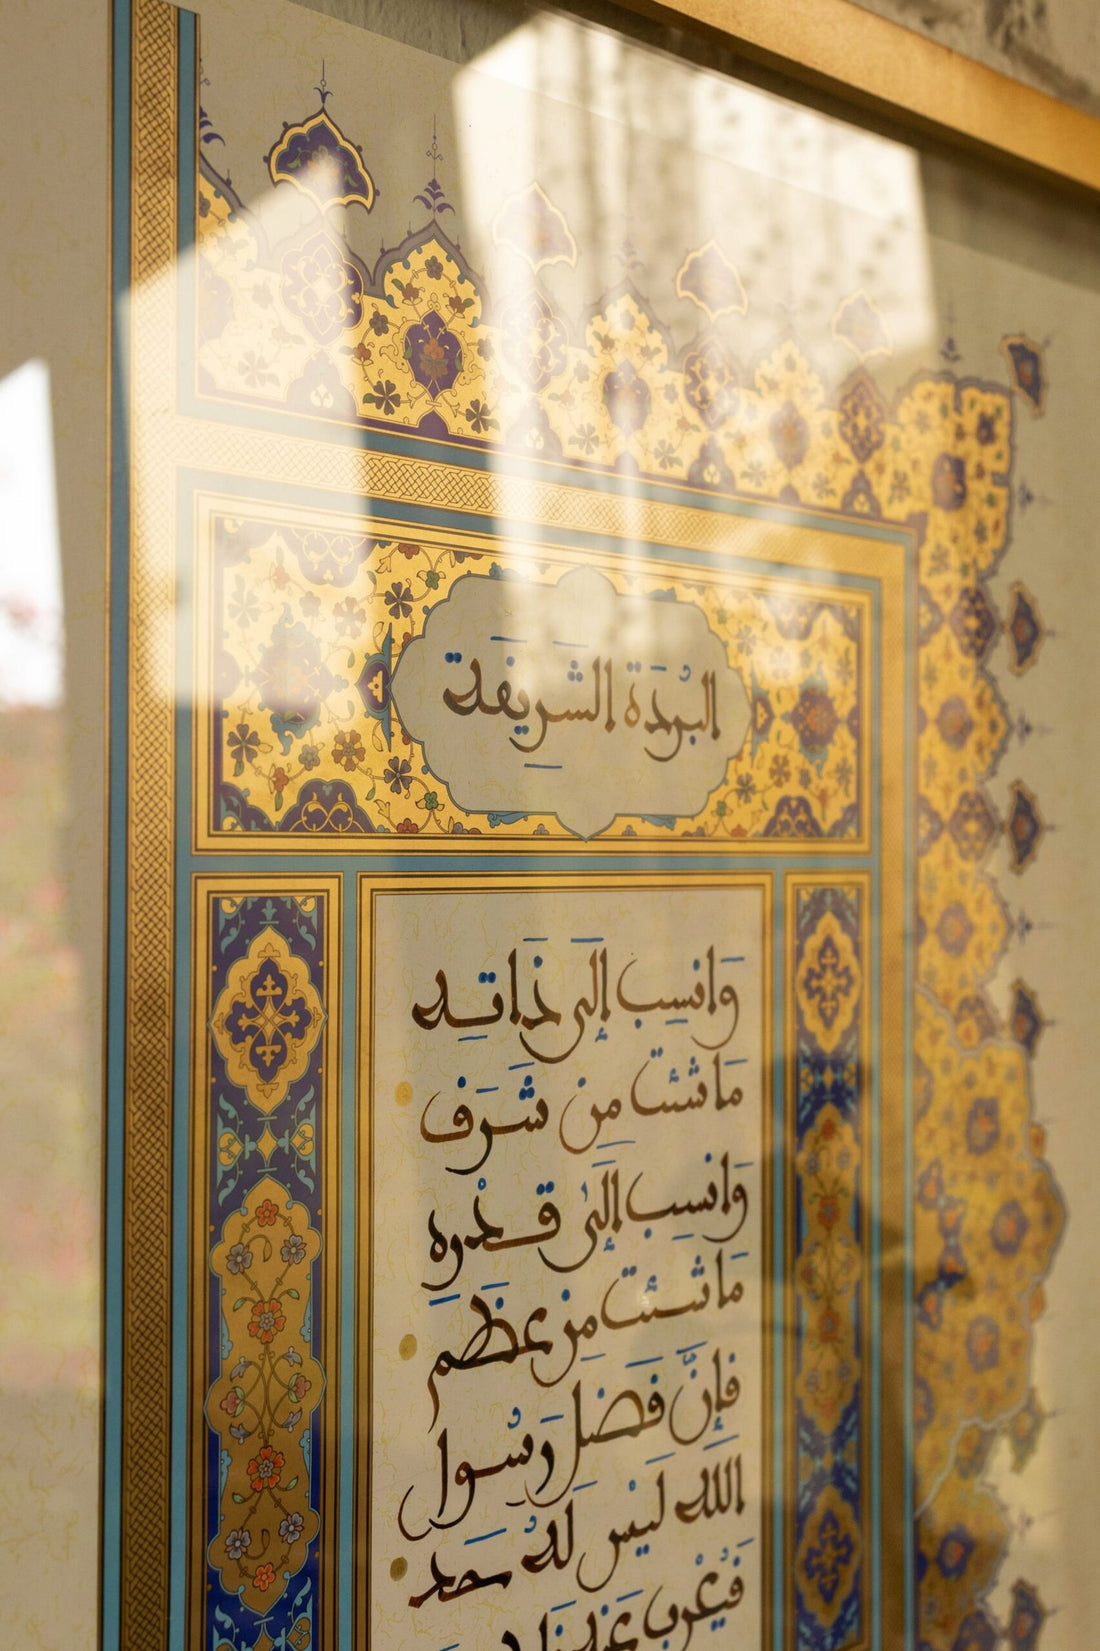 البُردَة الشَريفَة
وَانسِب إلَى ذَاتِه
مَا شئتَ مِن شَرَف
وَانسِب إلَى قَدْرِه
مَا شئتَ مِن عِظَم
فَإِنَّ فَضلَ رَسُول
اللهِ لَيْسَ لَهُ حَد
فَيُعْرِبَ عَنهُ